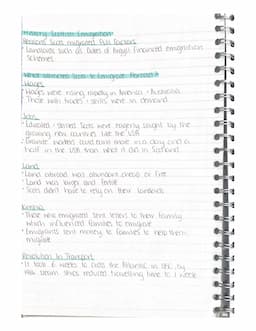 History: Scottish Emigration
Reasons Scots migrated Pull Factors
• Landlords such as Duke of Argyll financed emigration
schemes
What attracted Scots to Emigrate Abroad?
Wages
• Wages were rising rapidly in America + Australia
• Those with trades + skills were in demand
Jobs
• Educated + skilled Scots were eagerly sought by the
growing new countries like the USA
• Granite workers could earn more in a day and a
half in the USA than what it did in Scotland
Land
• Land abroad was abundant, cheap or free
• Land was larger and fertile
• Scots didn't have to rely on their landlords
Kinship
• Those who emigrated sent letters to their family
which influenced families to emigrate
• Emigrants sent money to families to help them
migrate
Revolution In Transport
• It took 6 weeks to cross the Atlantic in
steam ships reduced travelling time to 1 week